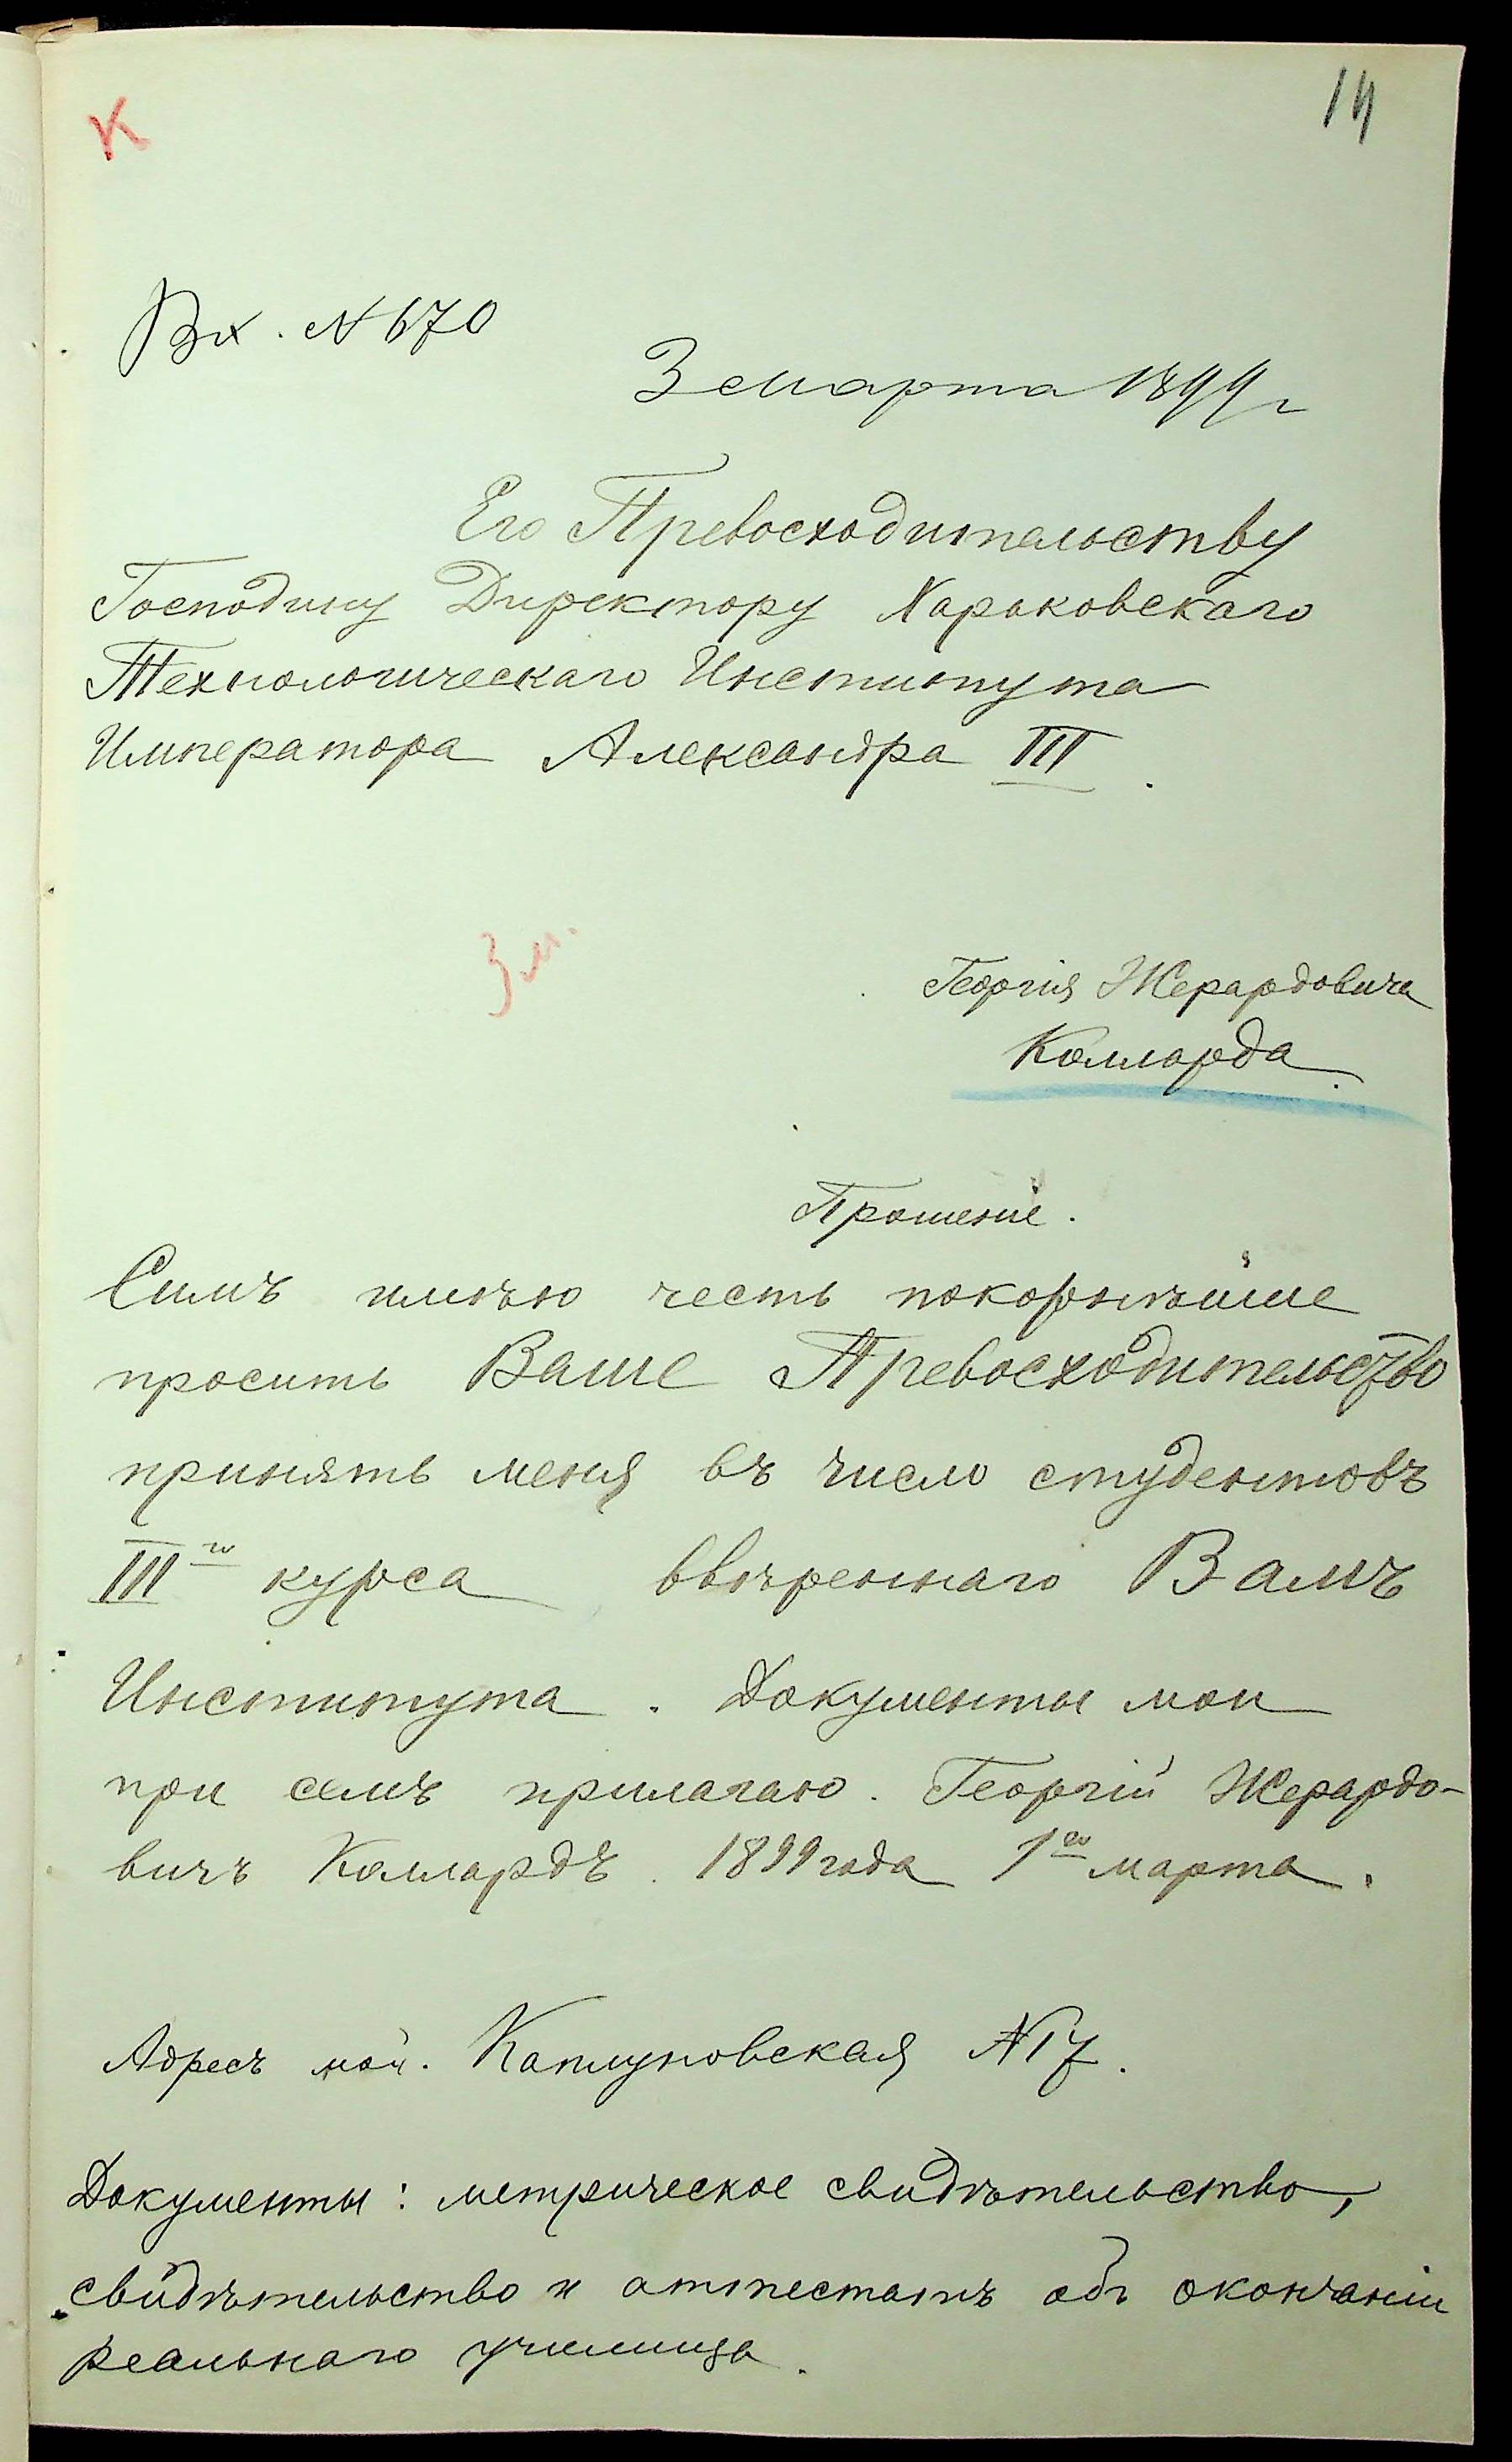 К
14
Вх. № 670
3 Марта 1899 г
Его Превосходительству
Господину Директору Харьковскаго
Технологическаго Института
Императора Александра III.
3 м.
Георгія Жерардовича
Колларда.
Прошеніе.
Симъ имѣю честь покорнѣйше
просить Ваше Превосходительство
принять меня въ число студентовъ
III го курса ввѣреннаго Вамъ
Института. Документы мои
при семъ прилагаю. Георгій Жерардо-
вичъ Коллардъ. 1899 года 1 го марта.
Адресъ мой. Каплуновская № 17.
Документы: метрическое свидѣтельство,
свидѣтельство и аттестатъ объ окончаніи
реальнаго училища.